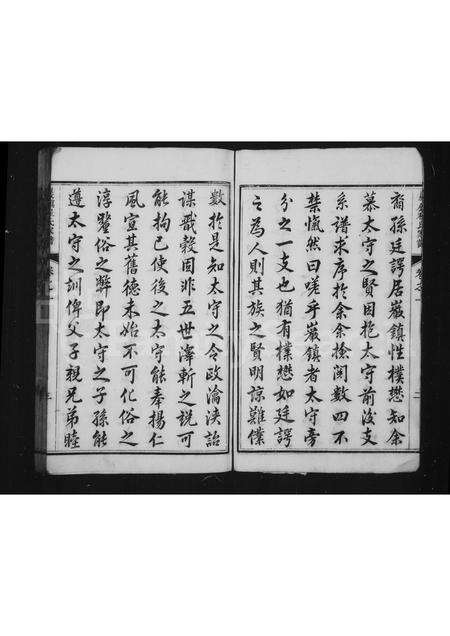 裔孫廷諤居巖鎮性樸懋知余
慕太守之賢因抱太守前後支
系譜求序於余余捡閱數四不
禁慨然曰嗟乎巖鎮者太守旁
分之一支也猶有樸懋如廷諤
之為人則其族之賢明諒難僕
數於是知太守之令政淪浹詒
謀戩穀固非五世澤斬之說可
能拘已使後之太守能奉揚仁
風宣其舊德未始不可化俗之
淳醫俗之弊即太守之子孫能
遵太守之訓俾父子親兄弟睦